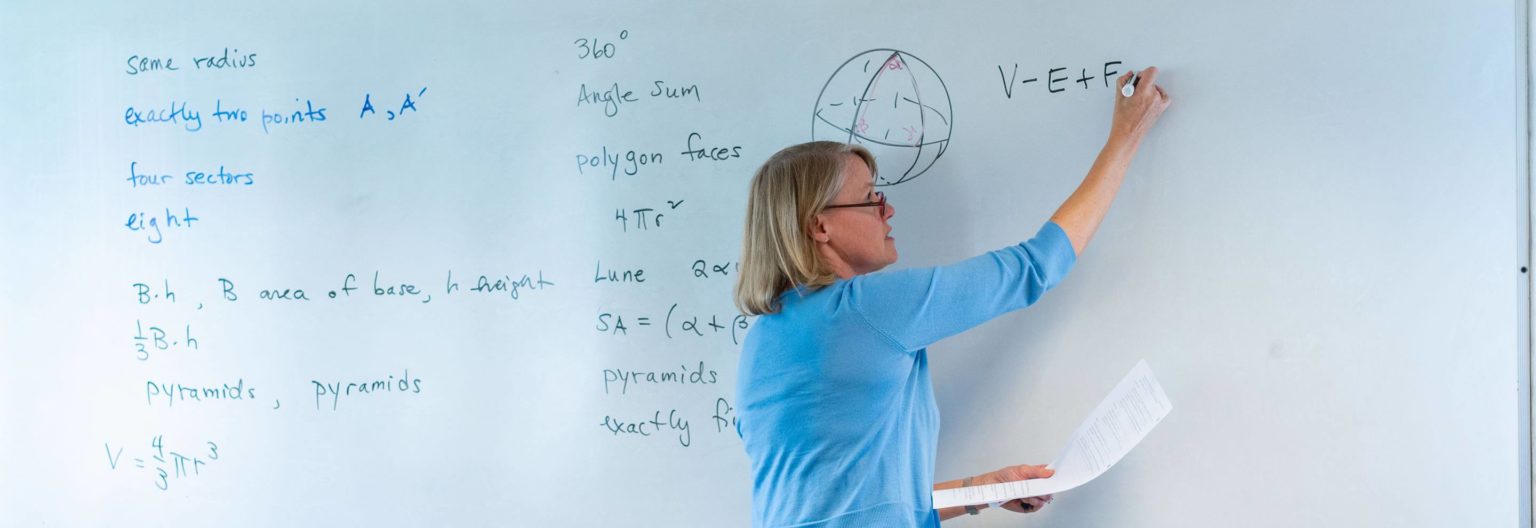 same radius
exactly two points A, A′
four sectors
eight
B·h, B area of base, h height
1/3 B·h
pyramids, pyramids
V = 4/3 πr³
360°
Angle Sum
polygon faces
4πr²
Lune 2α
SA = (α + β
pyramids
exactly
V - E + F